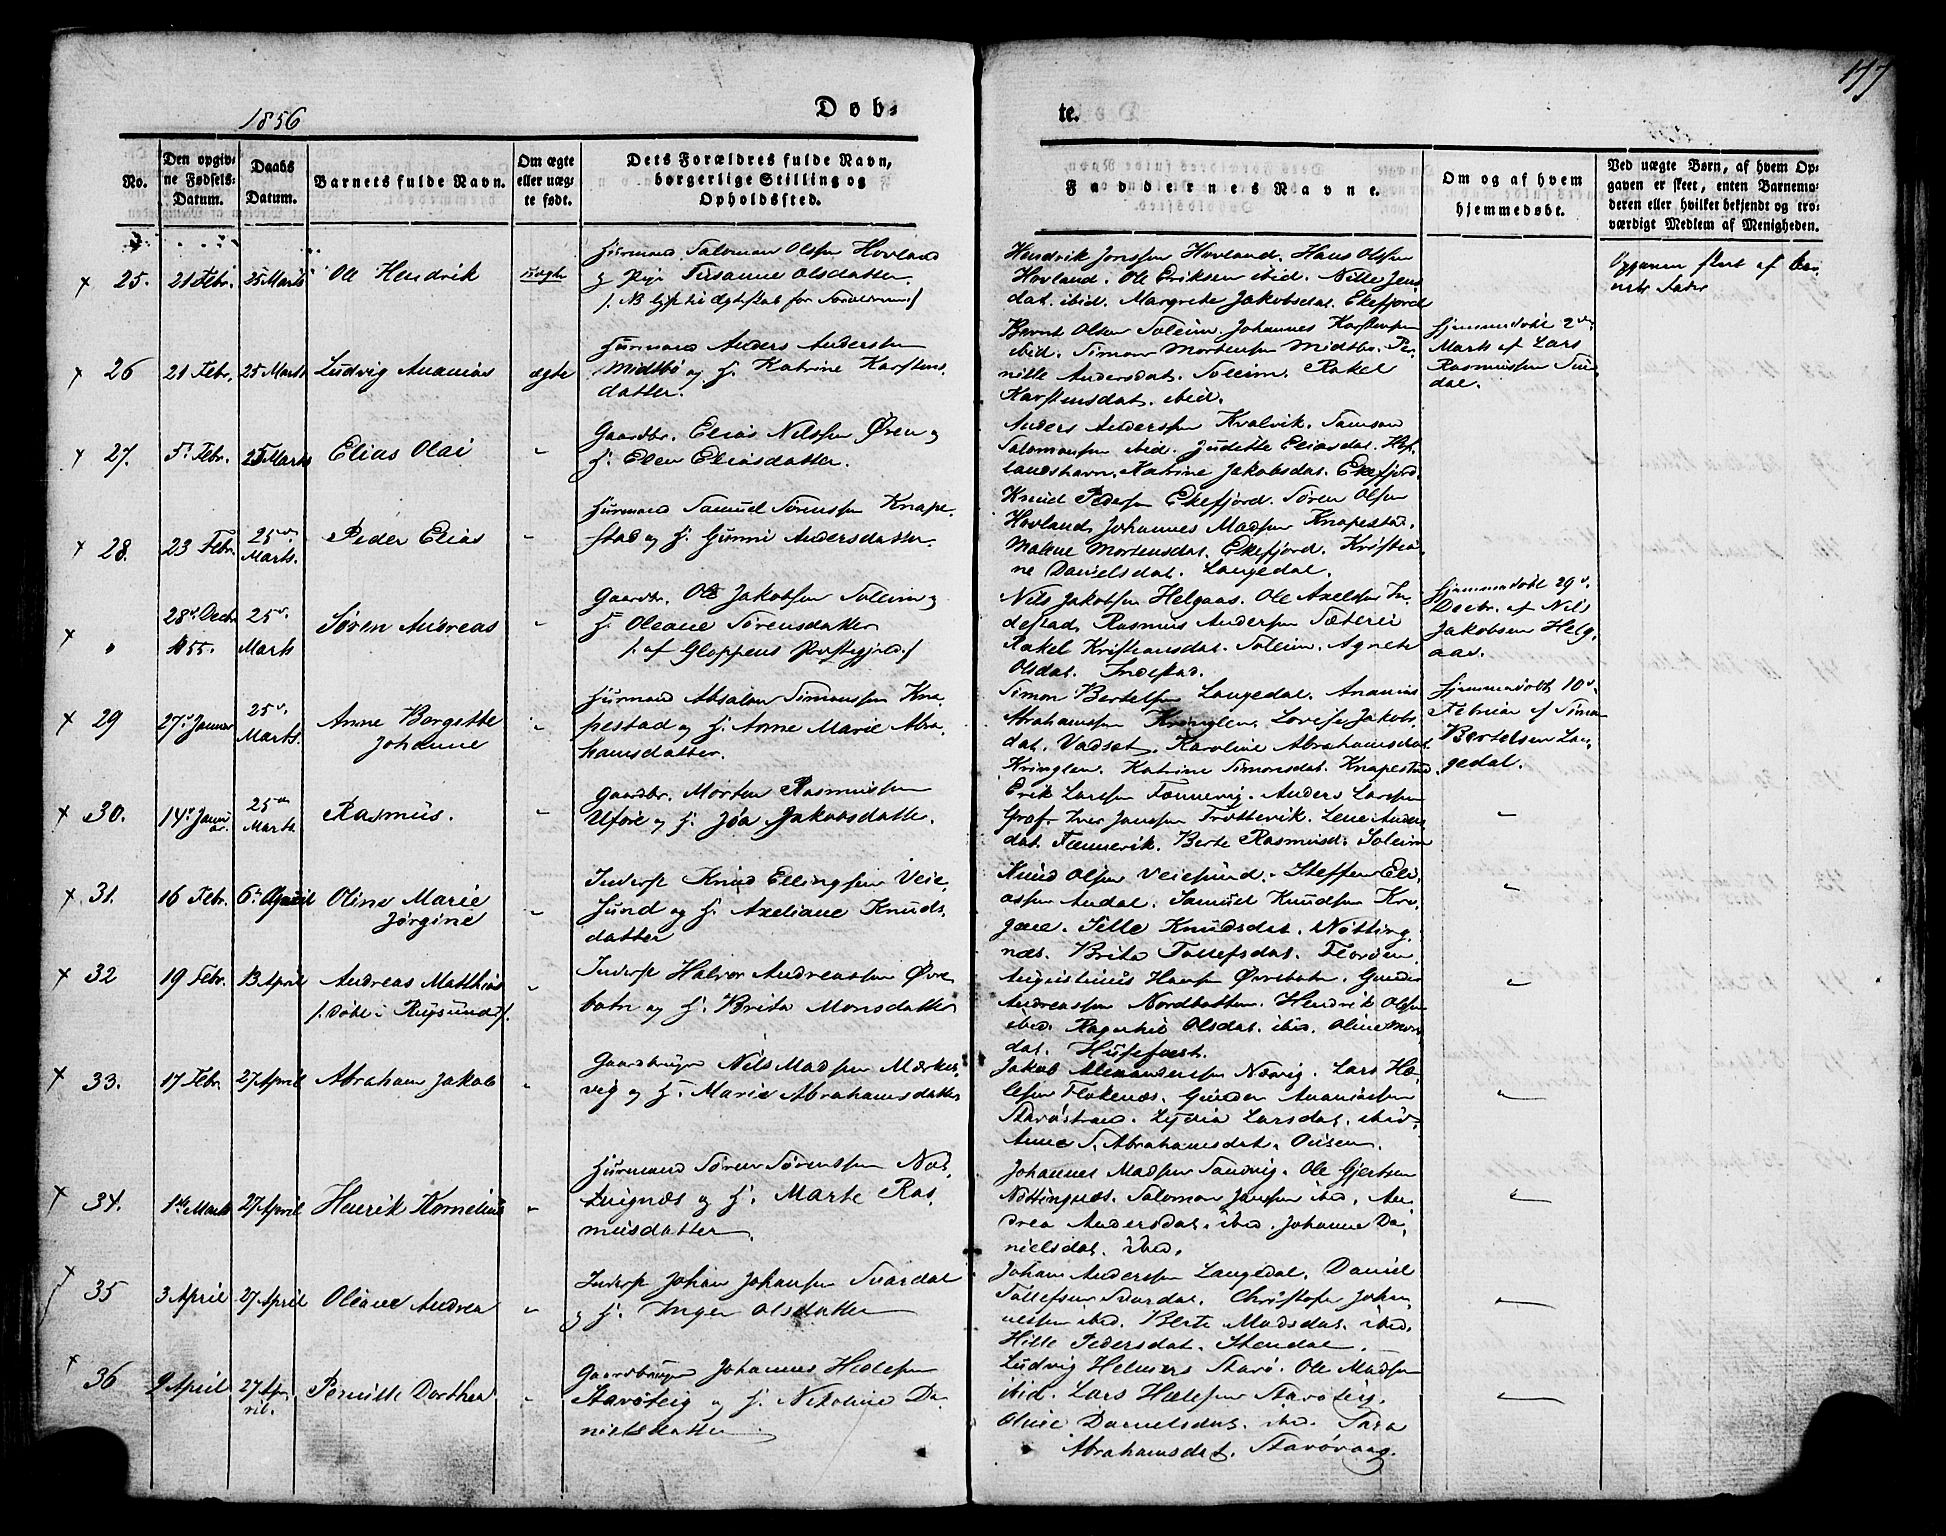 177
1856
Døb-
te.
No.
Den opgiv-
ne Fødsels-
Datum.
Daabs
Datum.
Barnets fulde Navn.
Om ægte
eller uæg-
te født.
Dets Forældres fulde Navn,
borgerlige Stilling og
Opholdssted.
Faddernes Navne.
Om og af hvem
hjemmedøbt.
Ved uægte Børn, af hvem Op-
gaven er skeet, enten Barnemo-
deren eller hvilket bekjendt og tro-
værdigt Medlem af Menigheden.
× 25. 21 Febr. 25 Marts Ole Hendrik uægte
Huusmand Salomon Olsen Hovland
og Pige Susanne Olsdatter
Hendrik Jonssen Hovland. Hans Olsen
Hovland. Ole Eriksen ibid. Nille Jens
dat. ibid. Margrete Jakobsdat. Ekefjord
Opgaven skeet af Bar-
nets Fader
× 26 21 Febr. 25 Marts Ludvig Ananias ægte
Huusmand Anders Anderssen
Midtbø og H. Katrine Karstens
datter.
Bernt Olsen Soleim. Johannes Karstensen
ibid. Simon Mortensen Midtbø. Per-
nille Andersdat. Soleim. Rakel
Karstensdat. ibid.
Hjemmedøbt 2den
Marts af Lars
Rasmussen Sun
dal.
× 27. 5t Febr. 25 Marts Elias Olai "
Gaardbr. Elias Nilssen Øren og
H. Elen Eliasdatter.
Anders Anderssen Kvalvik. Samson
Salomonsen ibid. Judithe Eliasdat. Hef-
landshavn. Katrine Jakobsdat. Ekefjord.
× 28. 23 Febr. 25de Marts. Peder Elias "
Huusmand Samuel Sørenssen Knape-
stad og H. Gunni Andersdatter.
Knud Pedersen Ekefjord. Søren Olsen
Hovland. Johannes Madsen Knapestad.
Malene Mortensdat. Ekefjord. Kristia-
ne Danielsdat. Langedal.
× " 28de Decbr 1855. 25de Marts Søren Andreas "
Gaardbr. Ole Jakobsen Soleim og
H. Oleane Sørensdatter
/: af Gloppens Præstegjeld :/
Nils Jakobsen Helgaas. Ole Axelsen In-
destad. Rasmus Andersen Sæterei
Rakel Kristiansdat. Soleim. Agnete
Olsdat. Indestad.
Hjemmedøbt 29de
Decbr. af Nils
Jakobsen Helg
aas.
× 29 27de Januar 25de Marts. Anne Bergitte
Johanne "
Huusmand Absalon Simonssen Kna-
pestad og H. Anne Marie Abra-
hamsdatter.
Simon Bertelsen Langedal. Ananias
Abrahamssen Kringlen. Lovise Jakobs
dat. Vadset. Karoline Abrahamsdat.
Kringlen. Katrine Simonsdat. Knapestad.
Hjemmedøbt 10de
Februar af Simon
Bertelsen Lan-
gedal.
× 30. 14de Janu
ar. 25de Marts Rasmus. "
Gaardbr. Morten Rasmussen
Uføre og H. Jøa Jakobsdatter.
Erik Larssen Fænnevig. Anders Larssen
Graf. Iver Janssen Trottevik. Lene Anders
dat. Fænnevik. Berte Rasmusd. Soleim
× 31. 16 Febr. 6te April Oline Marie
Jørgine "
Inderst Knud Ellingsen Veie-
sund og H. Axeliane Knuds
datter
Knud Olsen Veiesund. Steffen Eli-
assen Andal. Samuel Knudsen Kro-
gøen. Sille Knudsdat. Nøtting-
næs. Brita Tollefsdat. Florøen.
× 32 19 Febr. 13 April Andreas Matthias
/: døbt i Rugsund :/. "
Inderst Halvor Andreassen Øvre
botn og H. Brita Monsdatter
Augustinus Hansen Øvrebotn. Gunder
Andreassen Nordbotten. Hendrik Olsen
ibid. Ragnhild Olsdat. ibid. Oline Mons
dat. Husefæst.
× 33. 17 Febr. 27 April Abraham Jakob "
Gaardbruger Nils Madsen Mærkes
vig og H. Marie Abrahamsdatter
Jakob Alexanderssen Næsvig. Lars He-
lesen Flokenæs. Gunder Ananiassen
Stavøstrand. Lydia Larsdat. ibid.
Anne S. Abrahamsdat. Ousen.
× 34. 1ste Marts 27 April Henrik Kornelius "
Huusmand Søren Sørenssen Nøt
tingnæs og H. Marte Ras
musdatter.
Johannes Madsen Sandvig. Ole Gjertsen
Nøttingnæs. Salomon Janssen ibid. An-
drea Andersdat. ibid. Johanne Da-
nielsdat. ibid.
× 35 3 April 27 April Oliane Andrea "
Inderst Johan Johansen Svardal
og H. Inger Olsdatter
Johan Anderssen Langedal. Daniel
Tollefsen Svardal. Christofer Johan-
nessen ibid. Berte Madsdat. ibid.
Hille Pedersdat. Stendal.
× 36 9 April 27 Ap-
ril. Pernille Dorthea "
Gaardbruger Johannes Helesen
Stavøteig og H. Nikoline Da-
nielsdatter.
Ludvig Helmers Stavø. Ole Madsen
ibid. Lars Helesen Stavøteig.
Oline Danielsdat. ibid. Sara
Abrahamsdat. Stavøvaag.